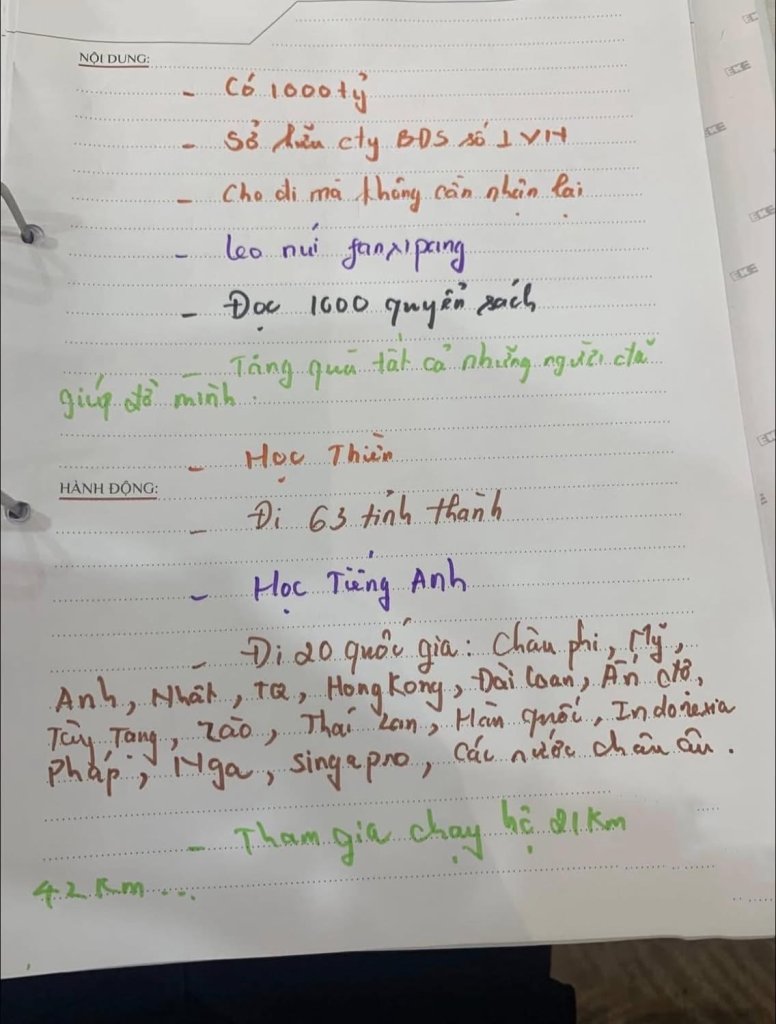 NỘI DUNG:
- Có 1000 tỷ
- Sở hữu cty BĐS số 1 VN
- Cho đi mà không cần nhận lại
- leo núi fanxipang
- Đọc 1000 quyển sách
- Tặng quà tất cả những người đã
giúp đỡ mình.
- Học Thiền
HÀNH ĐỘNG:
- Đi 63 tỉnh thành
- Học Tiếng Anh
- Đi 20 quốc gia: Châu phi, Mỹ,
Anh, Nhật, TQ, HongKong, Đài Loan, Ấn độ,
Tây Tạng, Lào, Thái Lan, Hàn quốc, Indonesia
Pháp, Nga, singapro, các nước châu âu.
- Tham gia chạy bộ 21 Km
42 Km ...